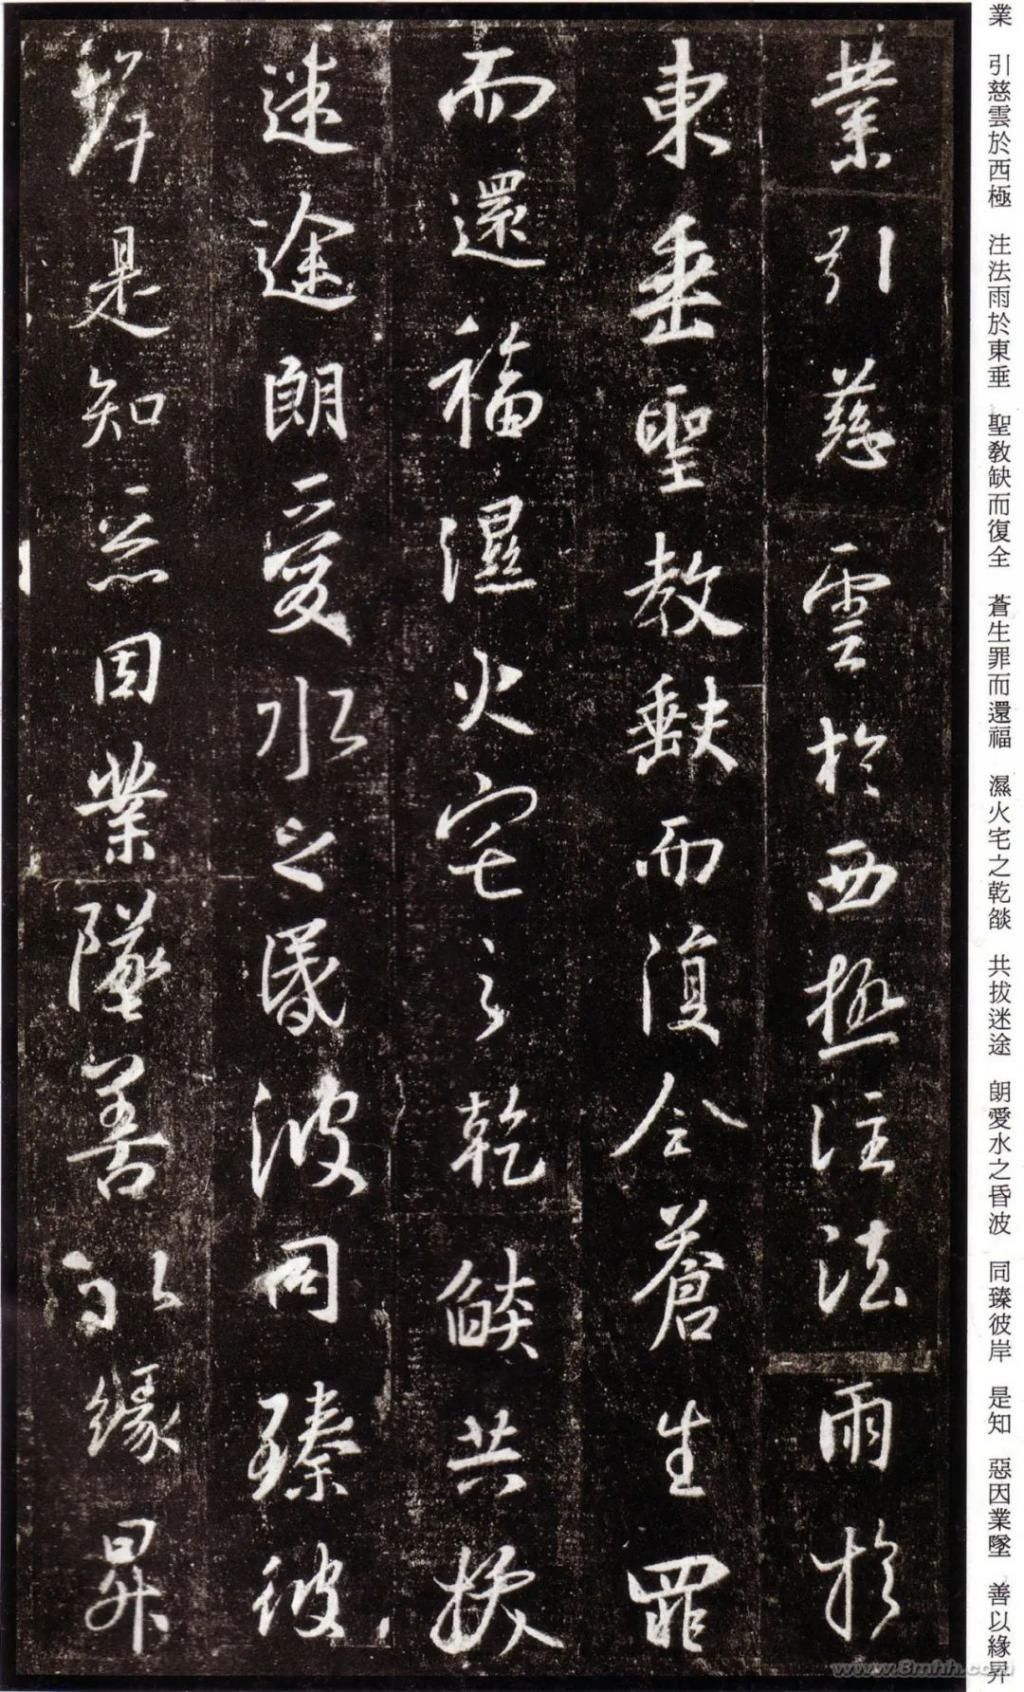 業 引慈雲於西極 注法雨於東垂 聖教缺而復全 蒼生罪而還福 濕火宅之乾燄 共拔迷途 朗愛水之昏波 同臻彼岸 是知 惡因業墜 善以緣昇
業引慈雲於西極注法雨於
東垂聖教缺而復全蒼生罪
而還福濕火宅之乾燄共拔
迷途朗愛水之昏波同臻彼
岸是知惡因業墜善以緣昇
www.8mhh.com